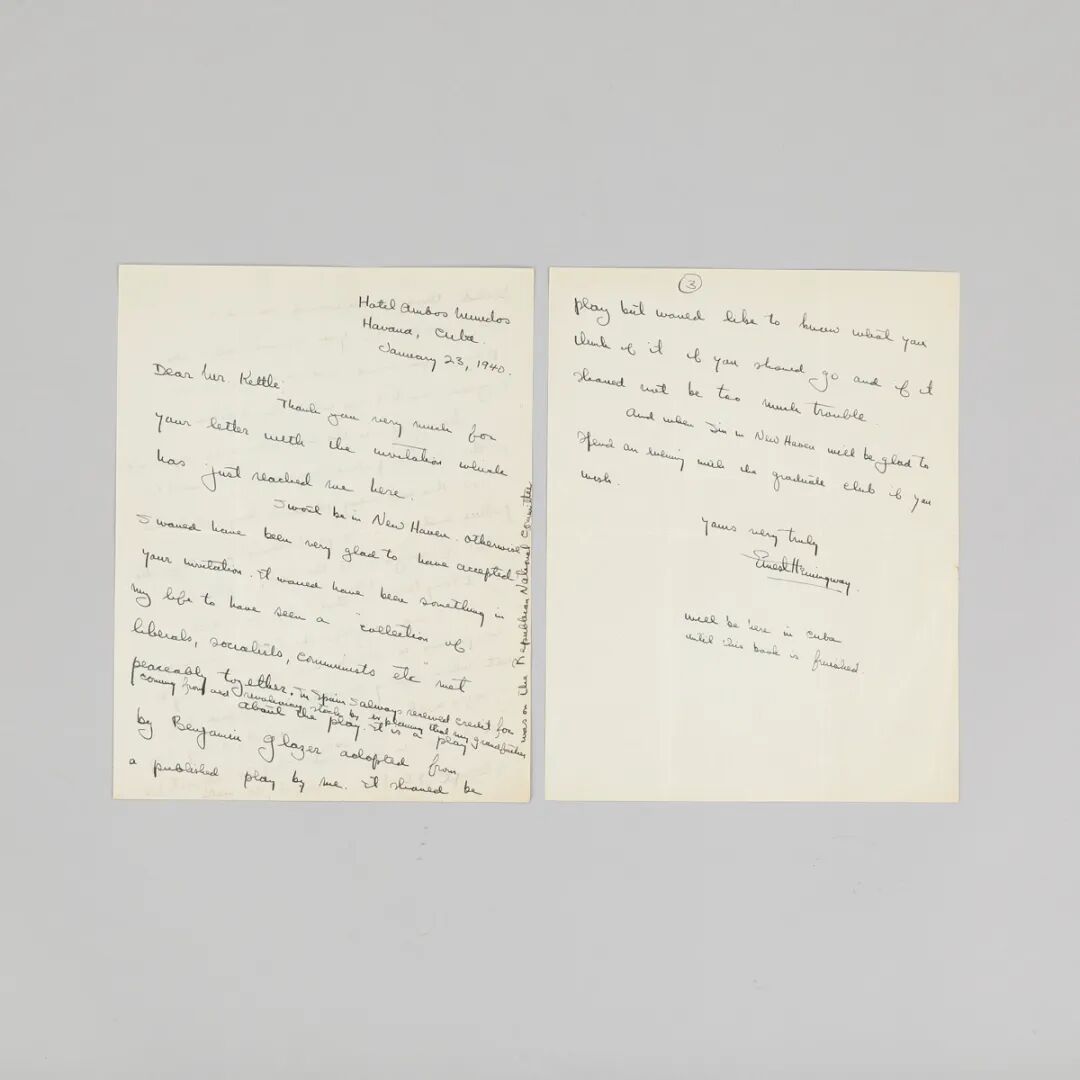 Hotel Ambos Mundos
Havana, Cuba.
January 23, 1940.
Dear Mr. Kettle:
Thank you very much for
your letter with the invitation which
has just reached me here.
I won't be in New Haven. otherwise
I would have been very glad to have accepted
your invitation. It would have been something in
my life to have seen a "collection of
liberals, socialists, communists etc" met
peaceably together. In Spain I always received credit for
coming from and revolutionary stock by explaining that my grandfather
was on the Republican National Committee
about the play. It is a play
by Benjamin Glazer adopted from
a published play by me. It should be
3
play but would like to know what you
think of it if you should go and if it
should not be too much trouble.
And when I'm in New Haven will be glad to
spend an evening with the graduate club if you
wish.
Yours very truly
Ernest Hemingway.
will be here in Cuba
until this book is finished.